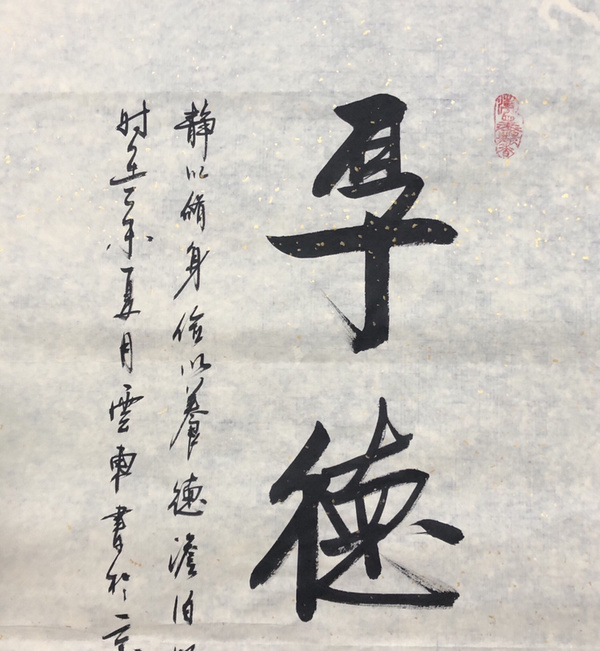 厚德
静以脩身俭以養德澹泊
时在乙未夏月雲東書於京